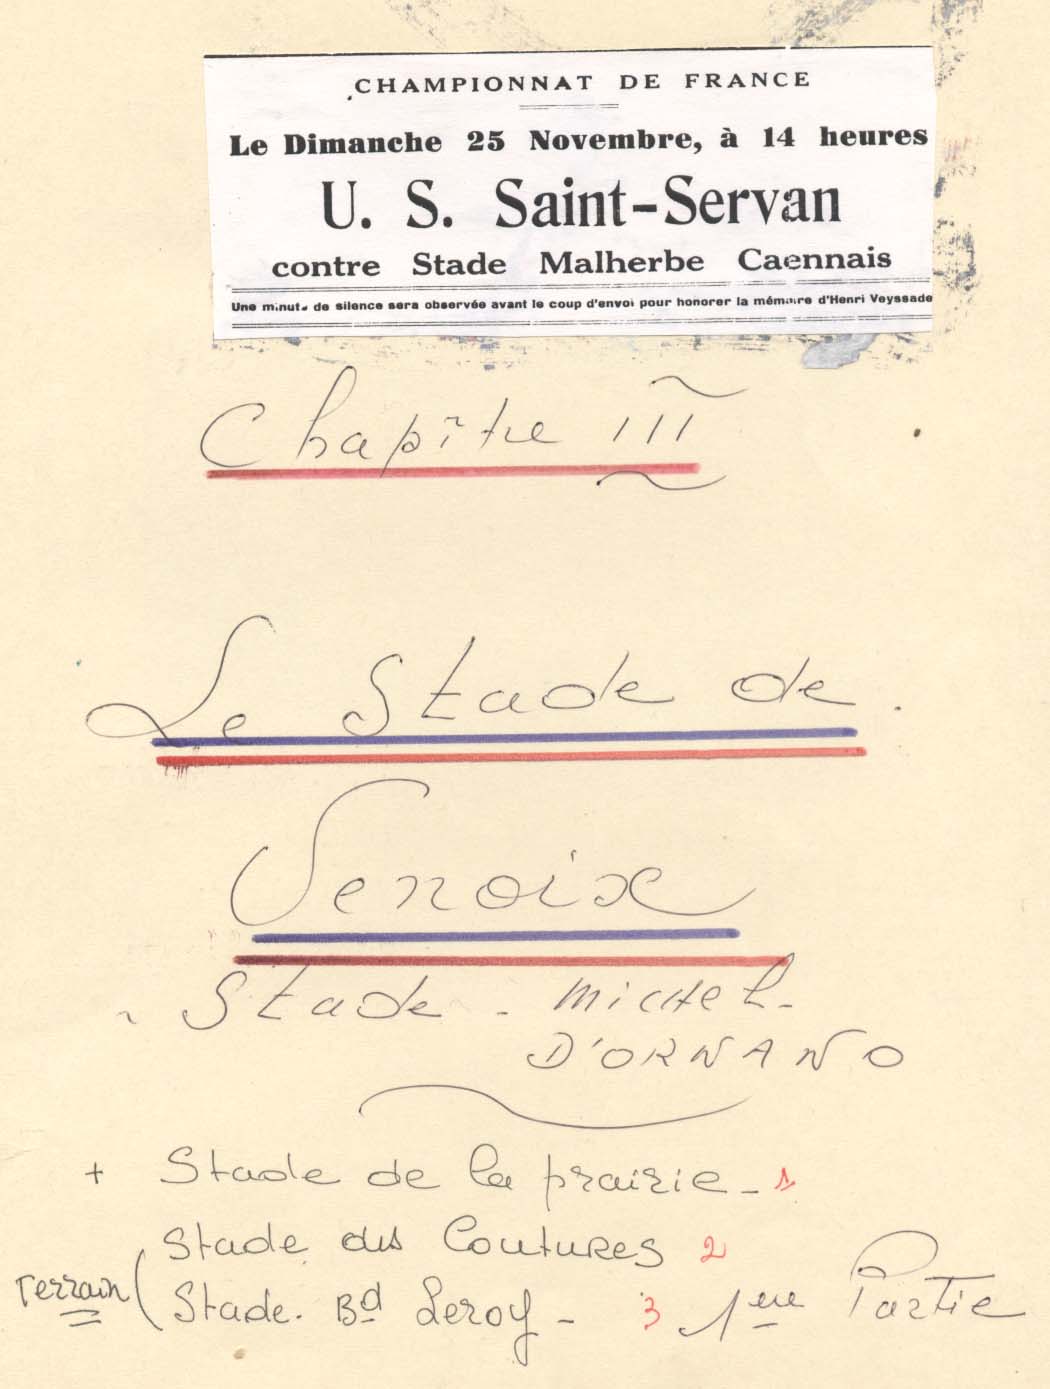 CHAMPIONNAT DE FRANCE
Le Dimanche 25 Novembre, à 14 heures
U. S. Saint-Servan
contre Stade Malherbe Caennais
Une minute de silence sera observée avant le coup d'envoi pour honorer la mémoire d'Henri Veyssade
Chapître III
Le Stade de
Venoix
Stade - Michel -
D'ORNANO
+ Stade de la prairie - 1
Stade des Coutures 2
Terrain ( Stade. Bd Leroy - 3 1ère Partie